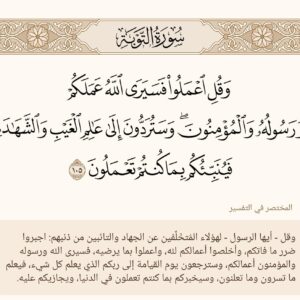 سُورَةُ التَّوۡبَةِ
وَقُلِ ٱعۡمَلُواْ فَسَيَرَى ٱللَّهُ عَمَلَكُمۡ
وَرَسُولُهُۥ وَٱلۡمُؤۡمِنُونَۖ وَسَتُرَدُّونَ إِلَىٰ عَٰلِمِ ٱلۡغَيۡبِ وَٱلشَّهَٰدَةِ
فَيُنَبِّئُكُم بِمَا كُنتُمۡ تَعۡمَلُونَ ١٠٥
المختصر في التفسير
وقل - أيها الرسول - لهؤلاء المُتخلِّفين عن الجهاد والتائبين من ذنبهم: اجبروا
ضرر ما فاتكم، وأخلصوا أعمالكم لله، واعملوا بما يرضيه، فسيرى الله ورسوله
والمؤمنون أعمالكم، وسترجعون يوم القيامة إلى ربكم الذي يعلم كل شيء، فيعلم
ما تسرون وما تعلنون، وسيخبركم بما كنتم تعملون في الدنيا، ويجازيكم عليه.